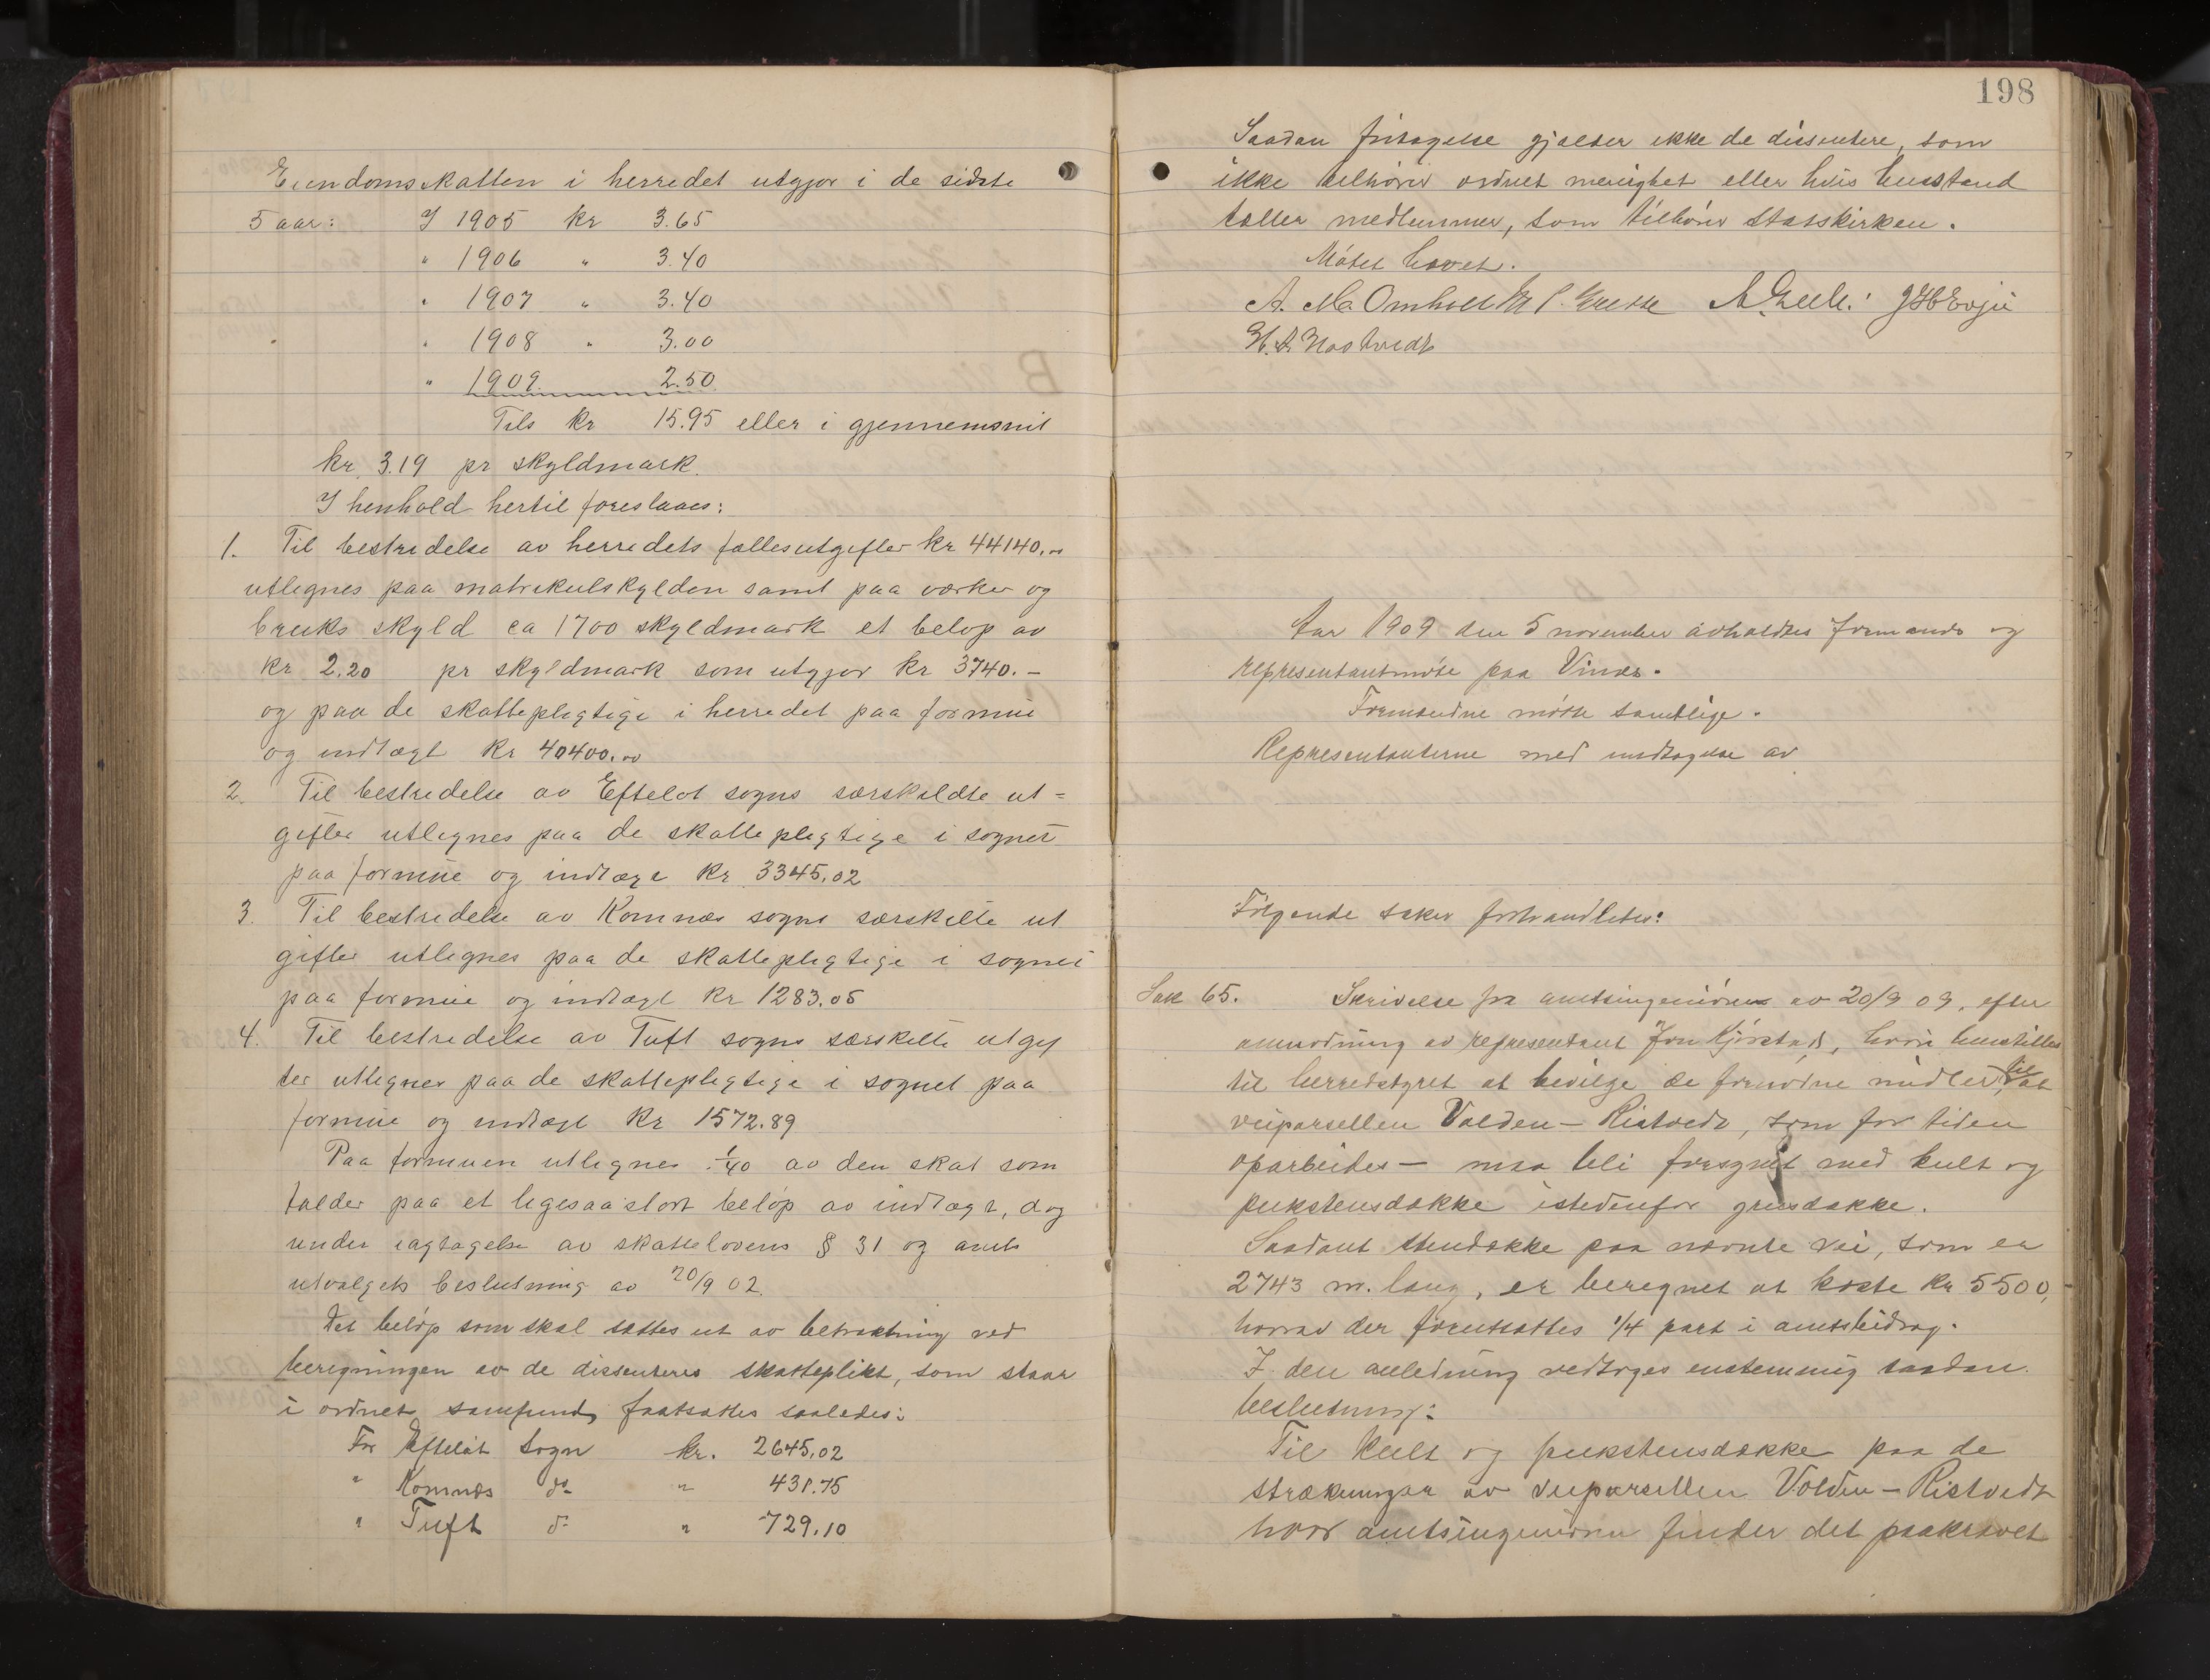 Eiendomsskatten i herredet utgjør i de sidste
5 aar: I 1905 kr 3.65
" 1906 " 3.40
" 1907 " 3.40
" 1908 " 3.00
" 1909 2.50
Tils kr 15.95 eller i gjennemsnit
kr 3.19 pr skyldmark.
I henhold hertil foreslaaes:
1. Til bestridelse av herredets fællesutgifter kr 44140.00
utlignes paa matrikulskylden samt paa verker og
bruks skyld ca 1700 skyldmark et beløp av
kr 2.20 pr skyldmark som utgjør kr 3740.-
og paa de skattepligtige i herredet paa formue
og indtægt kr 40400.00
2. Til bestridelse av Efteløt sogns særskildte ut=
gifter utlignes paa de skattepligtige i sognet
paa formue og indtægt kr 3345.02
3. Til bestridelse av Komnes sogns særskilte ut
gifter utlignes paa de skattepligtige i sognet
paa formue og indtægt kr 1283.05
4. Til bestridelse av Tuft sogns særskilte utgif
ter utlignes paa de skattepligtige i sognet paa
formue og indtægt kr 1572.89
Paa formuen utlignes 1/40 av den skat som
falder paa et ligesaa stort beløp av indtægt, dog
under iagtagelse av skattelovens § 31 og amts
utvalgets beslutning av 20/9 02.
Det beløp som skal sættes ut av betraktning ved
beregningen av de dissenteres skatteplikt, som staar
i ordnet samfund, fastsættes saaledes:
For Efteløt Sogn kr. 2645.02
" Komnes do " 431.75
" Tuft do " 729.10
198
Saadan fritagelse gjælder ikke de dissentere, som
ikke tilhører ordnet menighet eller hvis husstand
tæller medlemmer, som tilhører statskirken.
Møtet hævet.
A. M. Omholt J H Evju
H. A. Nostvedt
Aar 1909 den 5 november avholdtes formands og
representantmøte paa Vinæs.
Formændne møtte samtlige.
Representanterne med undtagelse av
Følgende saker forhandletes:
Sak 65. Skrivelse fra amtsingeniøren av 20/9 09, efter
anmodning av representant Jon Kjørstad, hvori henstilles
til herredstyret at bevilge de fornødne midler til at
veiparsellen Volden - Ristvedt, som for tiden
oparbeides - maa bli forsynet med kult og
pukstensdække istedenfor grusdække.
Saadant stendække paa nævnte vei, som er
2743 m. lang, er beregnet at koste kr 5500,-
hvorav der forutsættes 1/4 part i amtsbidrag.
I den anledning vedtoges enstemmig saadan
beslutning:
Til kult og pukstensdække paa de
strækninger av veiparsellen Volden - Ristvedt
hvor amtsingeniøren finder det paakrævet